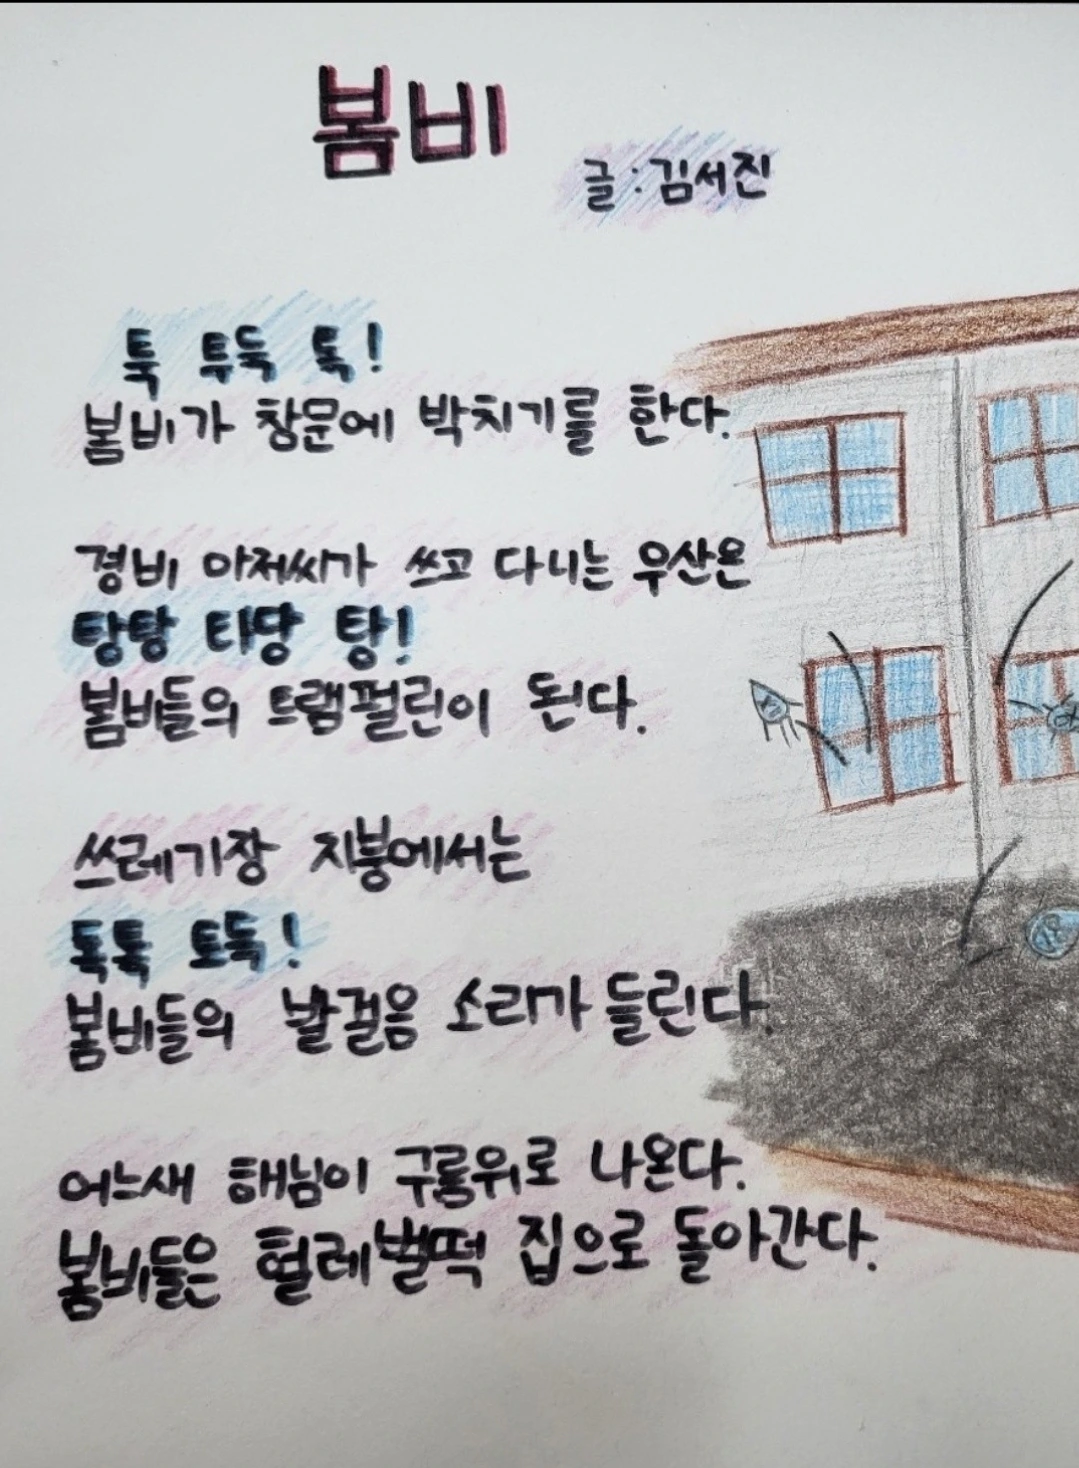 봄비
글:김서진
툭 투둑 톡!
봄비가 창문에 박치기를 한다.
경비 아저씨가 쓰고 다니는 우산은
탕탕 타당 탕!
봄비들의 트램펄린이 된다.
쓰레기장 지붕에서는
톡툭 토독!
봄비들의 발걸음 소리가 들린다.
어느새 해님이 구룡위로 나온다.
봄비들은 헐레벌떡 집으로 돌아간다.